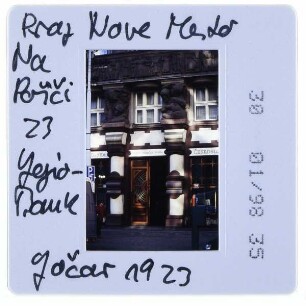 Prag Nove Mesto
Na
Poříčí
23
Legio-
Bank
Gočar 1923
30 01/98 35